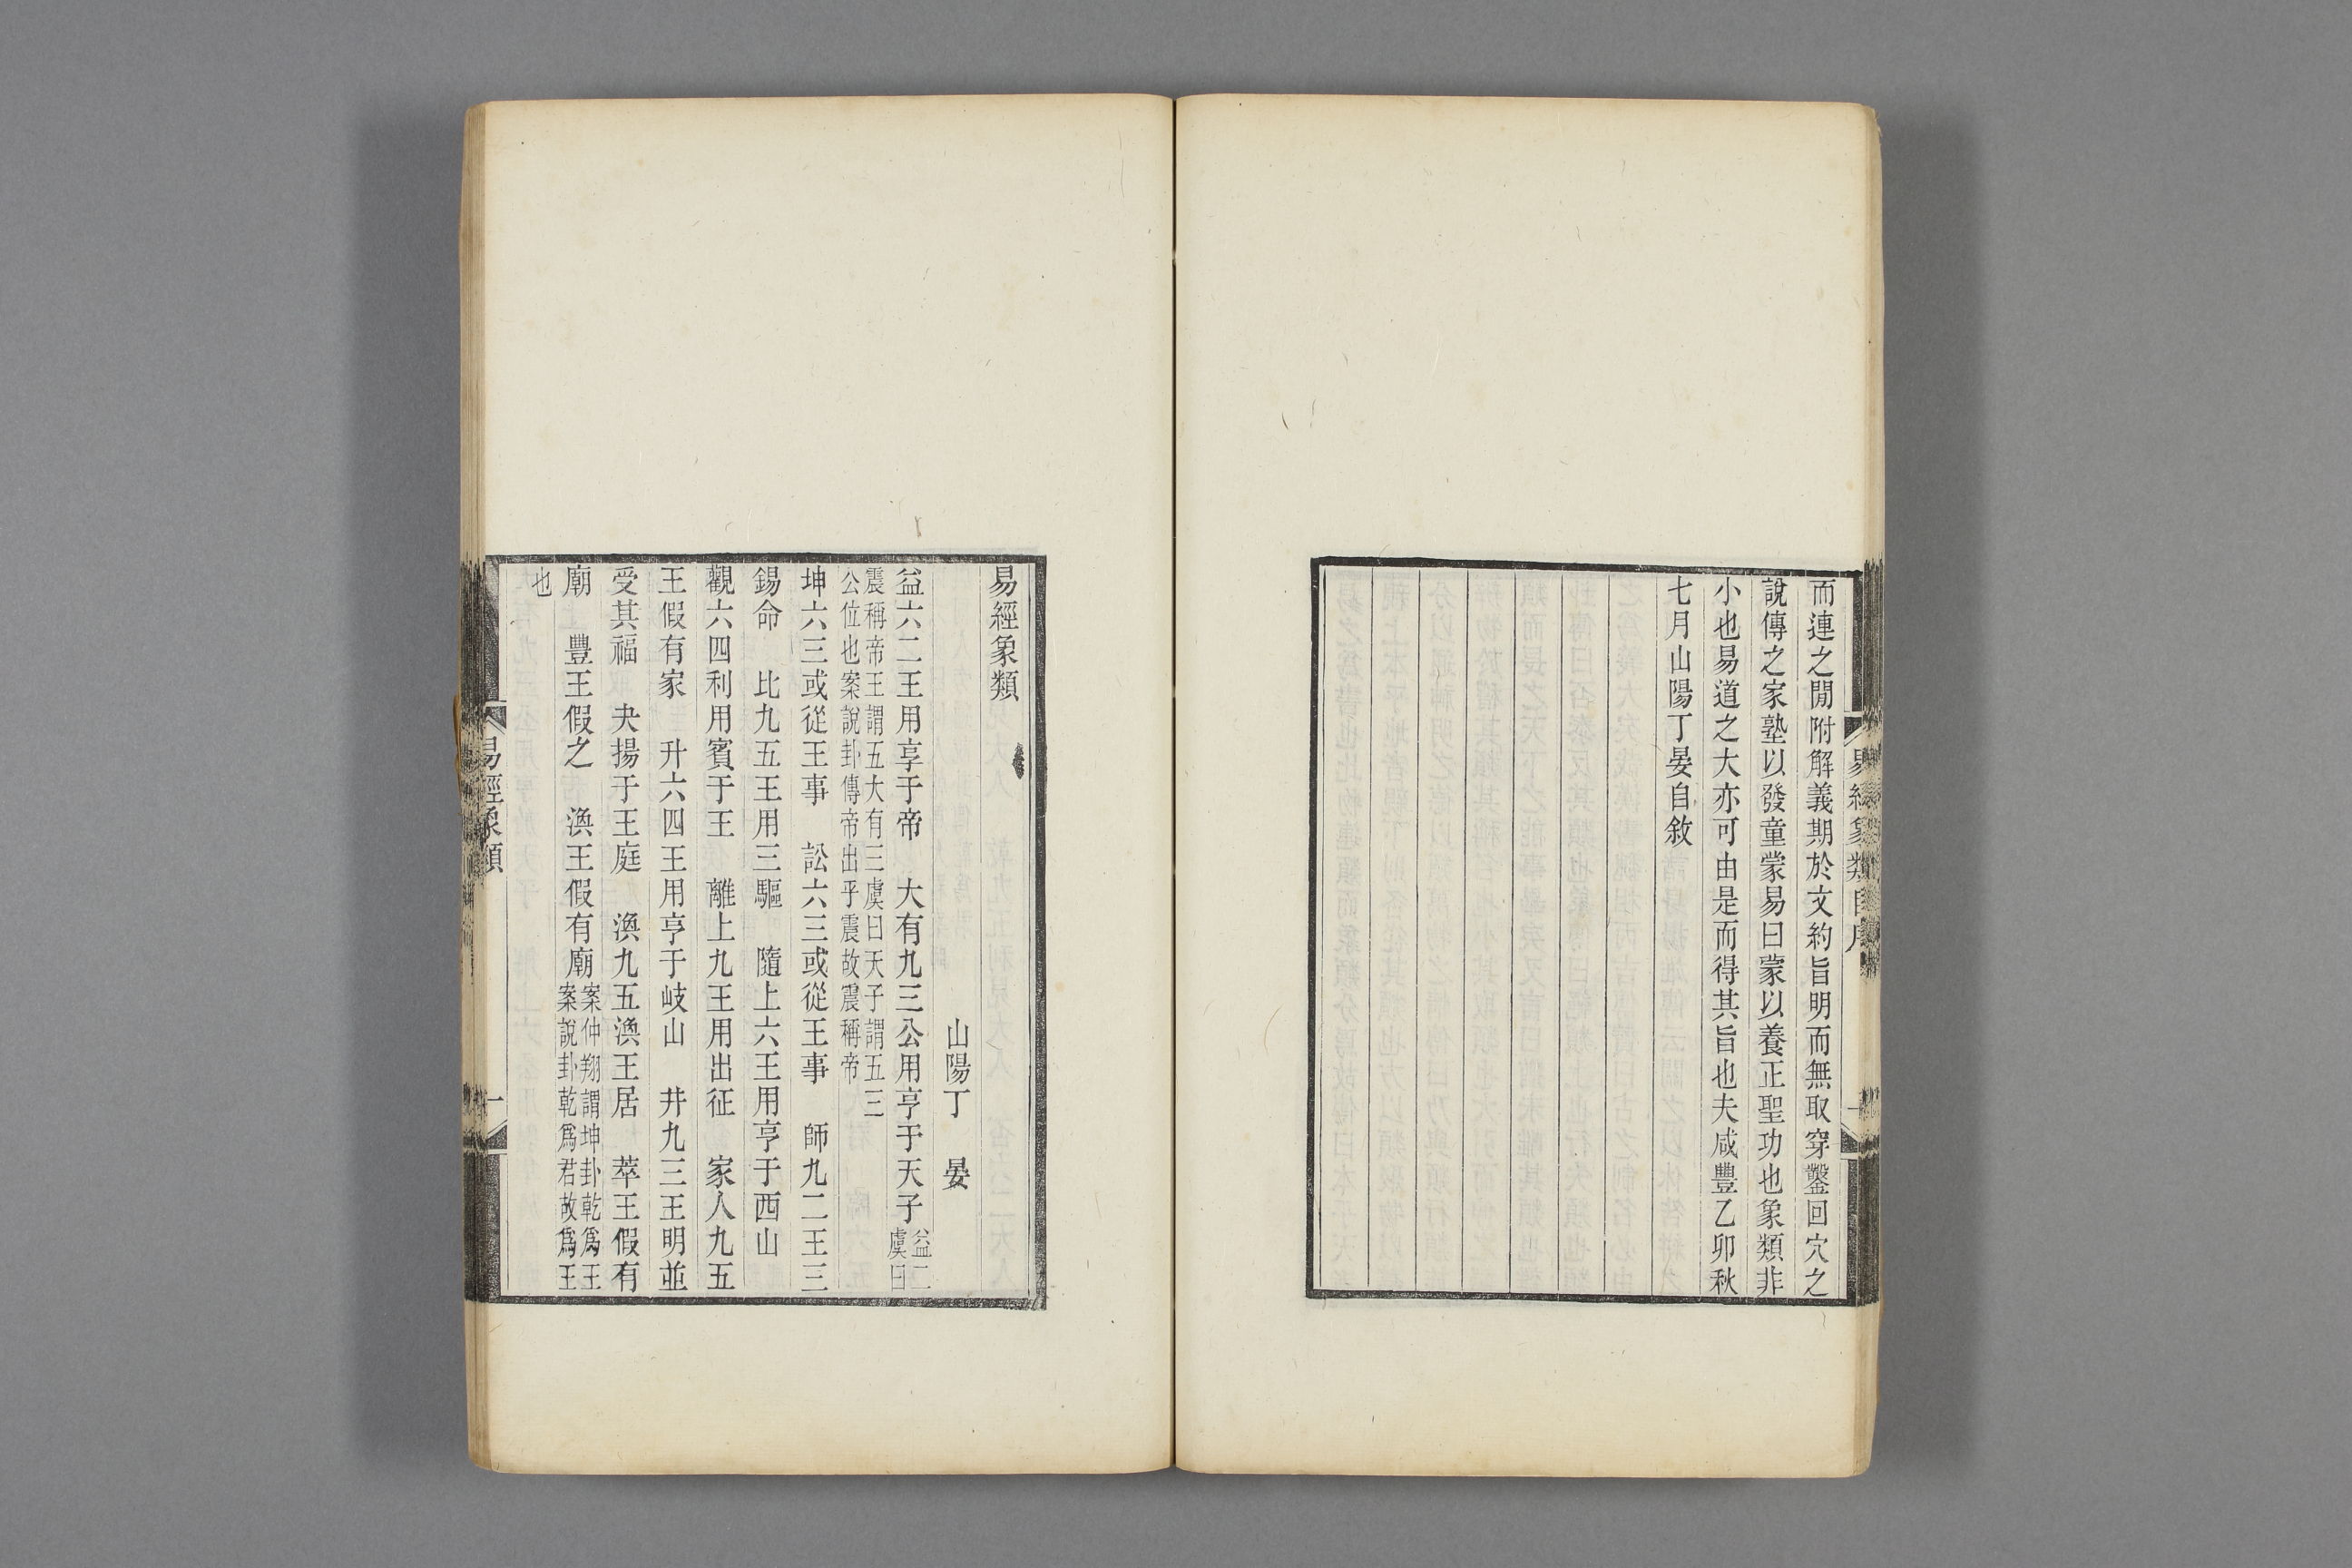 而連之閒附解義期於文約旨明而無取穿鑿回穴之
說傳之家塾以發童蒙易曰蒙以養正聖功也象類非
小也易道之大亦可由是而得其旨也夫咸豐乙卯秋
七月山陽丁晏自敘
易經象類
山陽丁　晏
益六二王用享于帝　大有九三公用亨于天子益二虞曰
震稱帝王謂五大有三虞曰天子謂五三
公位也案說卦傳帝出乎震故震稱帝
坤六三或從王事　訟六三或從王事　師九二王三
錫命　比九五王用三驅　隨上六王用亨于西山
觀六四利用賓于王　離上九王用出征　家人九五
王假有家　升六四王用亨于岐山　井九三王明並
受其福　夬揚于王庭　渙九五渙王居　萃王假有
廟　豐王假之　渙王假有廟案仲翔謂坤卦乾爲王案說卦乾爲君故爲王
也
易經象類
一